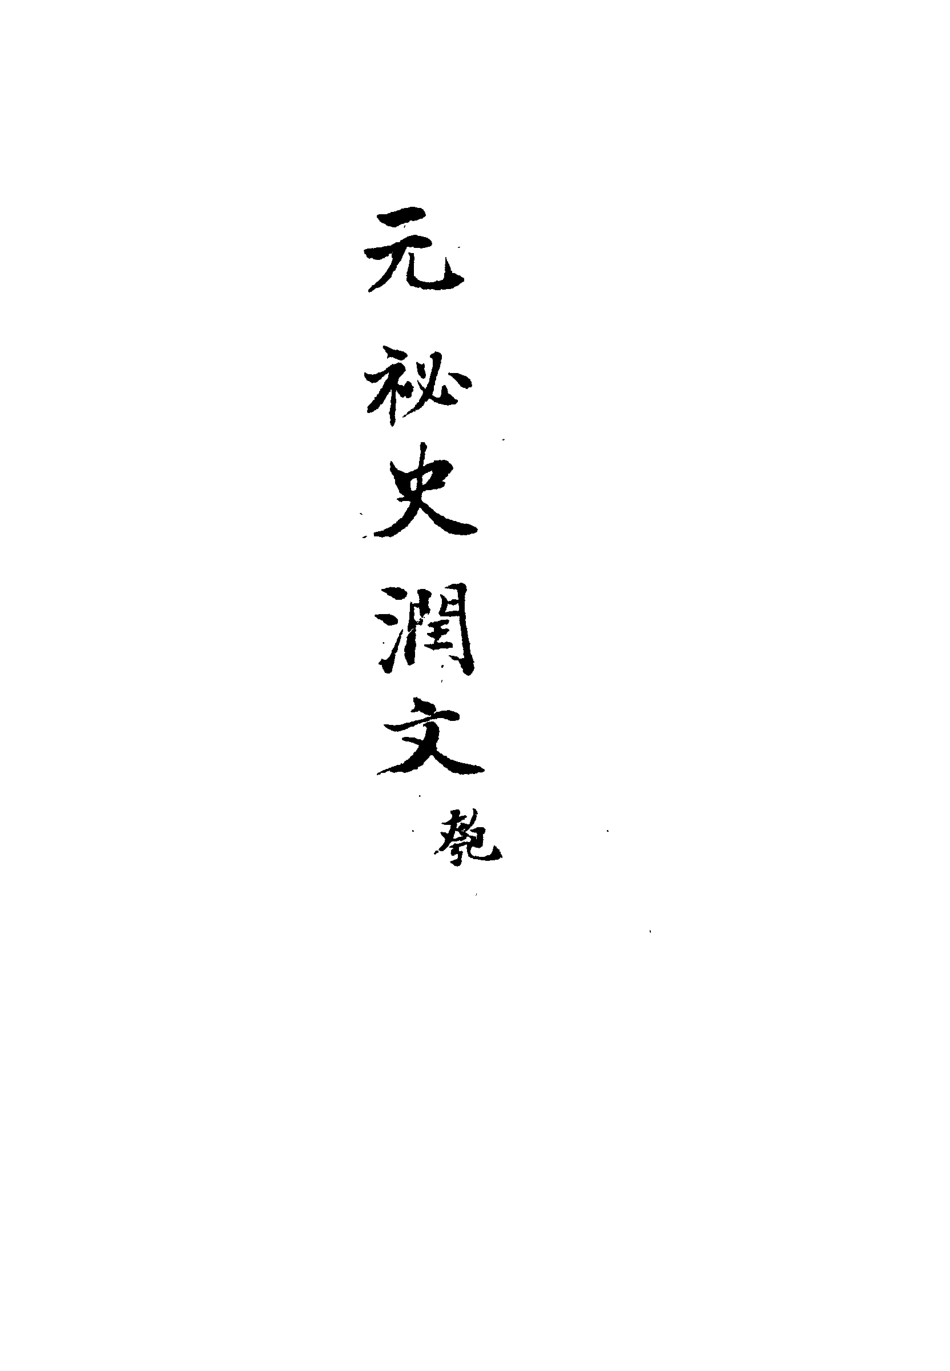 元祕史潤文
匏